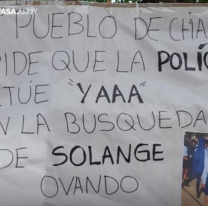 PASAJUJUY
PUEBLO DE CHA
PIDE QUE LA POLIC
CTUE "YAAA"
EN LA BUSQUEDA
DE SOLANGE
OVANDO